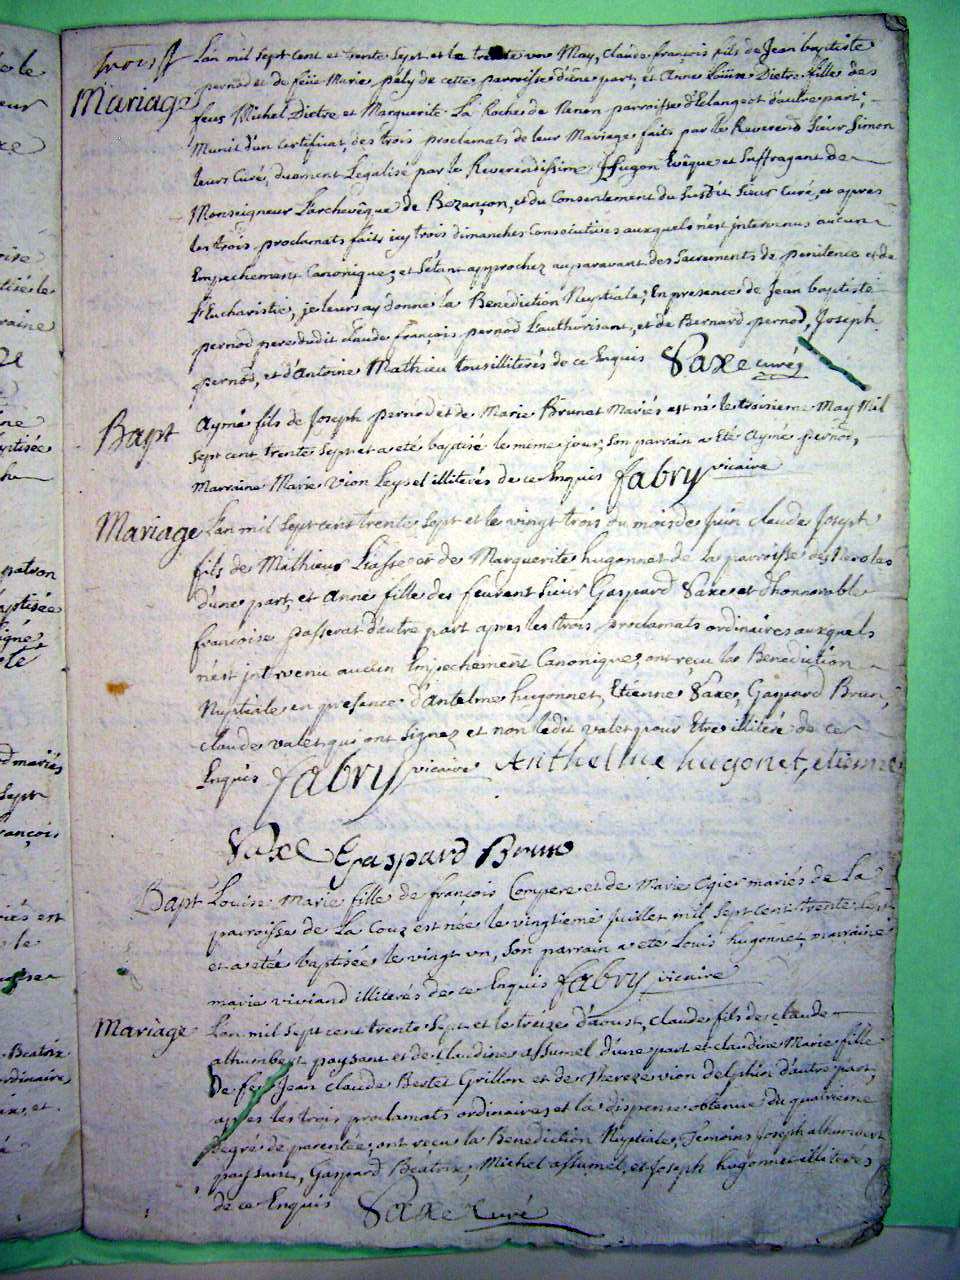 trois
L'an mil sept cent et trente sept et le trente un May, Claude françois fils de Jean baptiste
Mariage
pernod et de feüe Marie poly de cette parroisse d'une part, et Anne Loüise Dietre fille des
feus Michel Dietre et Marguerite La Roche de parroisse d'Elangeot d'autre part;
Munit d'un certificat, des trois proclamats de leur Mariage faits par le Reverend Sieur Simon
leurs Curé, duement Legalisé par le Reverendissime Hugon Evêque et Suffragant de
Monseigneur L'archevêque de Bezançon, et du Consentement du Susdit Sieur Curé, et apres
les trois proclamats faits icy trois dimanches Consecutives auxquels n'est intervenus aucun
Empechement Canonique, et s'étant approchez auparavant des Sacrements de penitence et de
l'Eucharistie, je leurs ay donné la Benediction Nuptiale, En presence de Jean baptiste
pernod pere dudit claude françois pernod L'authorisant, et de Bernard pernod, Joseph
pernod, et d'Antoine Mathieu tous illiterés de ce Enquis Saxe curé
Bapt
Aymé fils de Joseph pernod et de Marie Brunet Mariés est né le troisieme May Mil
sept cent trente sept et a eté baptisé le mème jour, son parrain a Eté Aymé pernod,
Marraine Marie Vion illiterés de ce Enquis fabry vicaire
Mariage L'an mil sept cent trente sept et le vingt trois du mois de Juin claude Joseph
fils de Mathieux et de Marguerite hugonnet de la parroisse des
d'une part, et Anne fille des feu Sieur Gaspard Saxe et d'honnorable
françoise passerat d'autre part apres les trois proclamats ordinaires auxquels
n'est intervenu aucun Empechement Canonique, ont reçu la Benediction
Nuptiale en presence d'Antelme hugonnet, Etienne Saxe, Gaspard Brun,
claude valet qui ont signez et non ledit valet pour Etre illitéré de ce
Enquis fabry vicaire Anthelme hugonet, etienne
Saxe Gaspard Brun
Bapt Louise Marie fille de françois Compere et de Marie Ogier mariés de La
parroisse de La Couz est née le vingtieme juillet mil sept cent trente sept
et a etée baptisée le vingt un, Son parrain a eté Louis hugonnet, marraine
marie viviand illiterés de ce Enquis fabry vicaire
Mariage L'an mil sept cent trente sept et le treize d'aoust, claude fils de claude
alhumbert paysant et de claudine assumel d'une part et claudine Marie fille
De feu Jean Claude Bertet Grillon et de thereze vion delphin d'autre part,
apres les trois proclamats ordinaires et la dispense obtenue du quatrieme
degré de parentée, ont reçu la Benediction Nuptiale, Temoins Joseph alhumbert
paysant, Gaspard Beatrix, Michel assumel, et Joseph hugonnet illiteres
de ce Enquis Saxe Curé